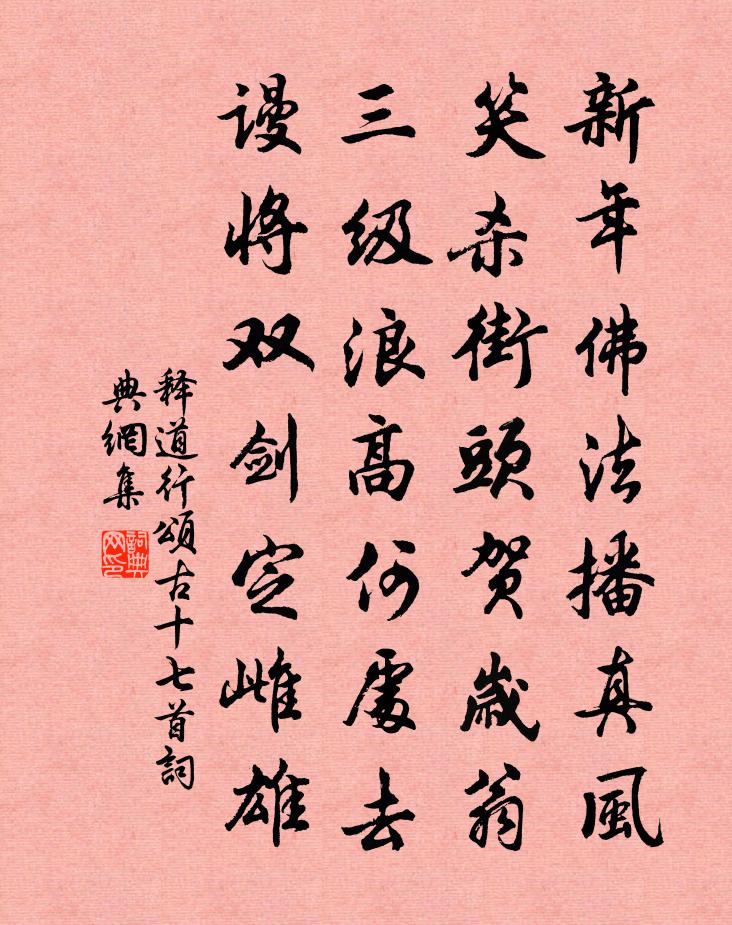 新年佛法播真風
笑杀街頭贺歲翁
三级浪高何處去
谩将双剑定雌雄
释道行頌古十七首詞
典網集
詞典
网印